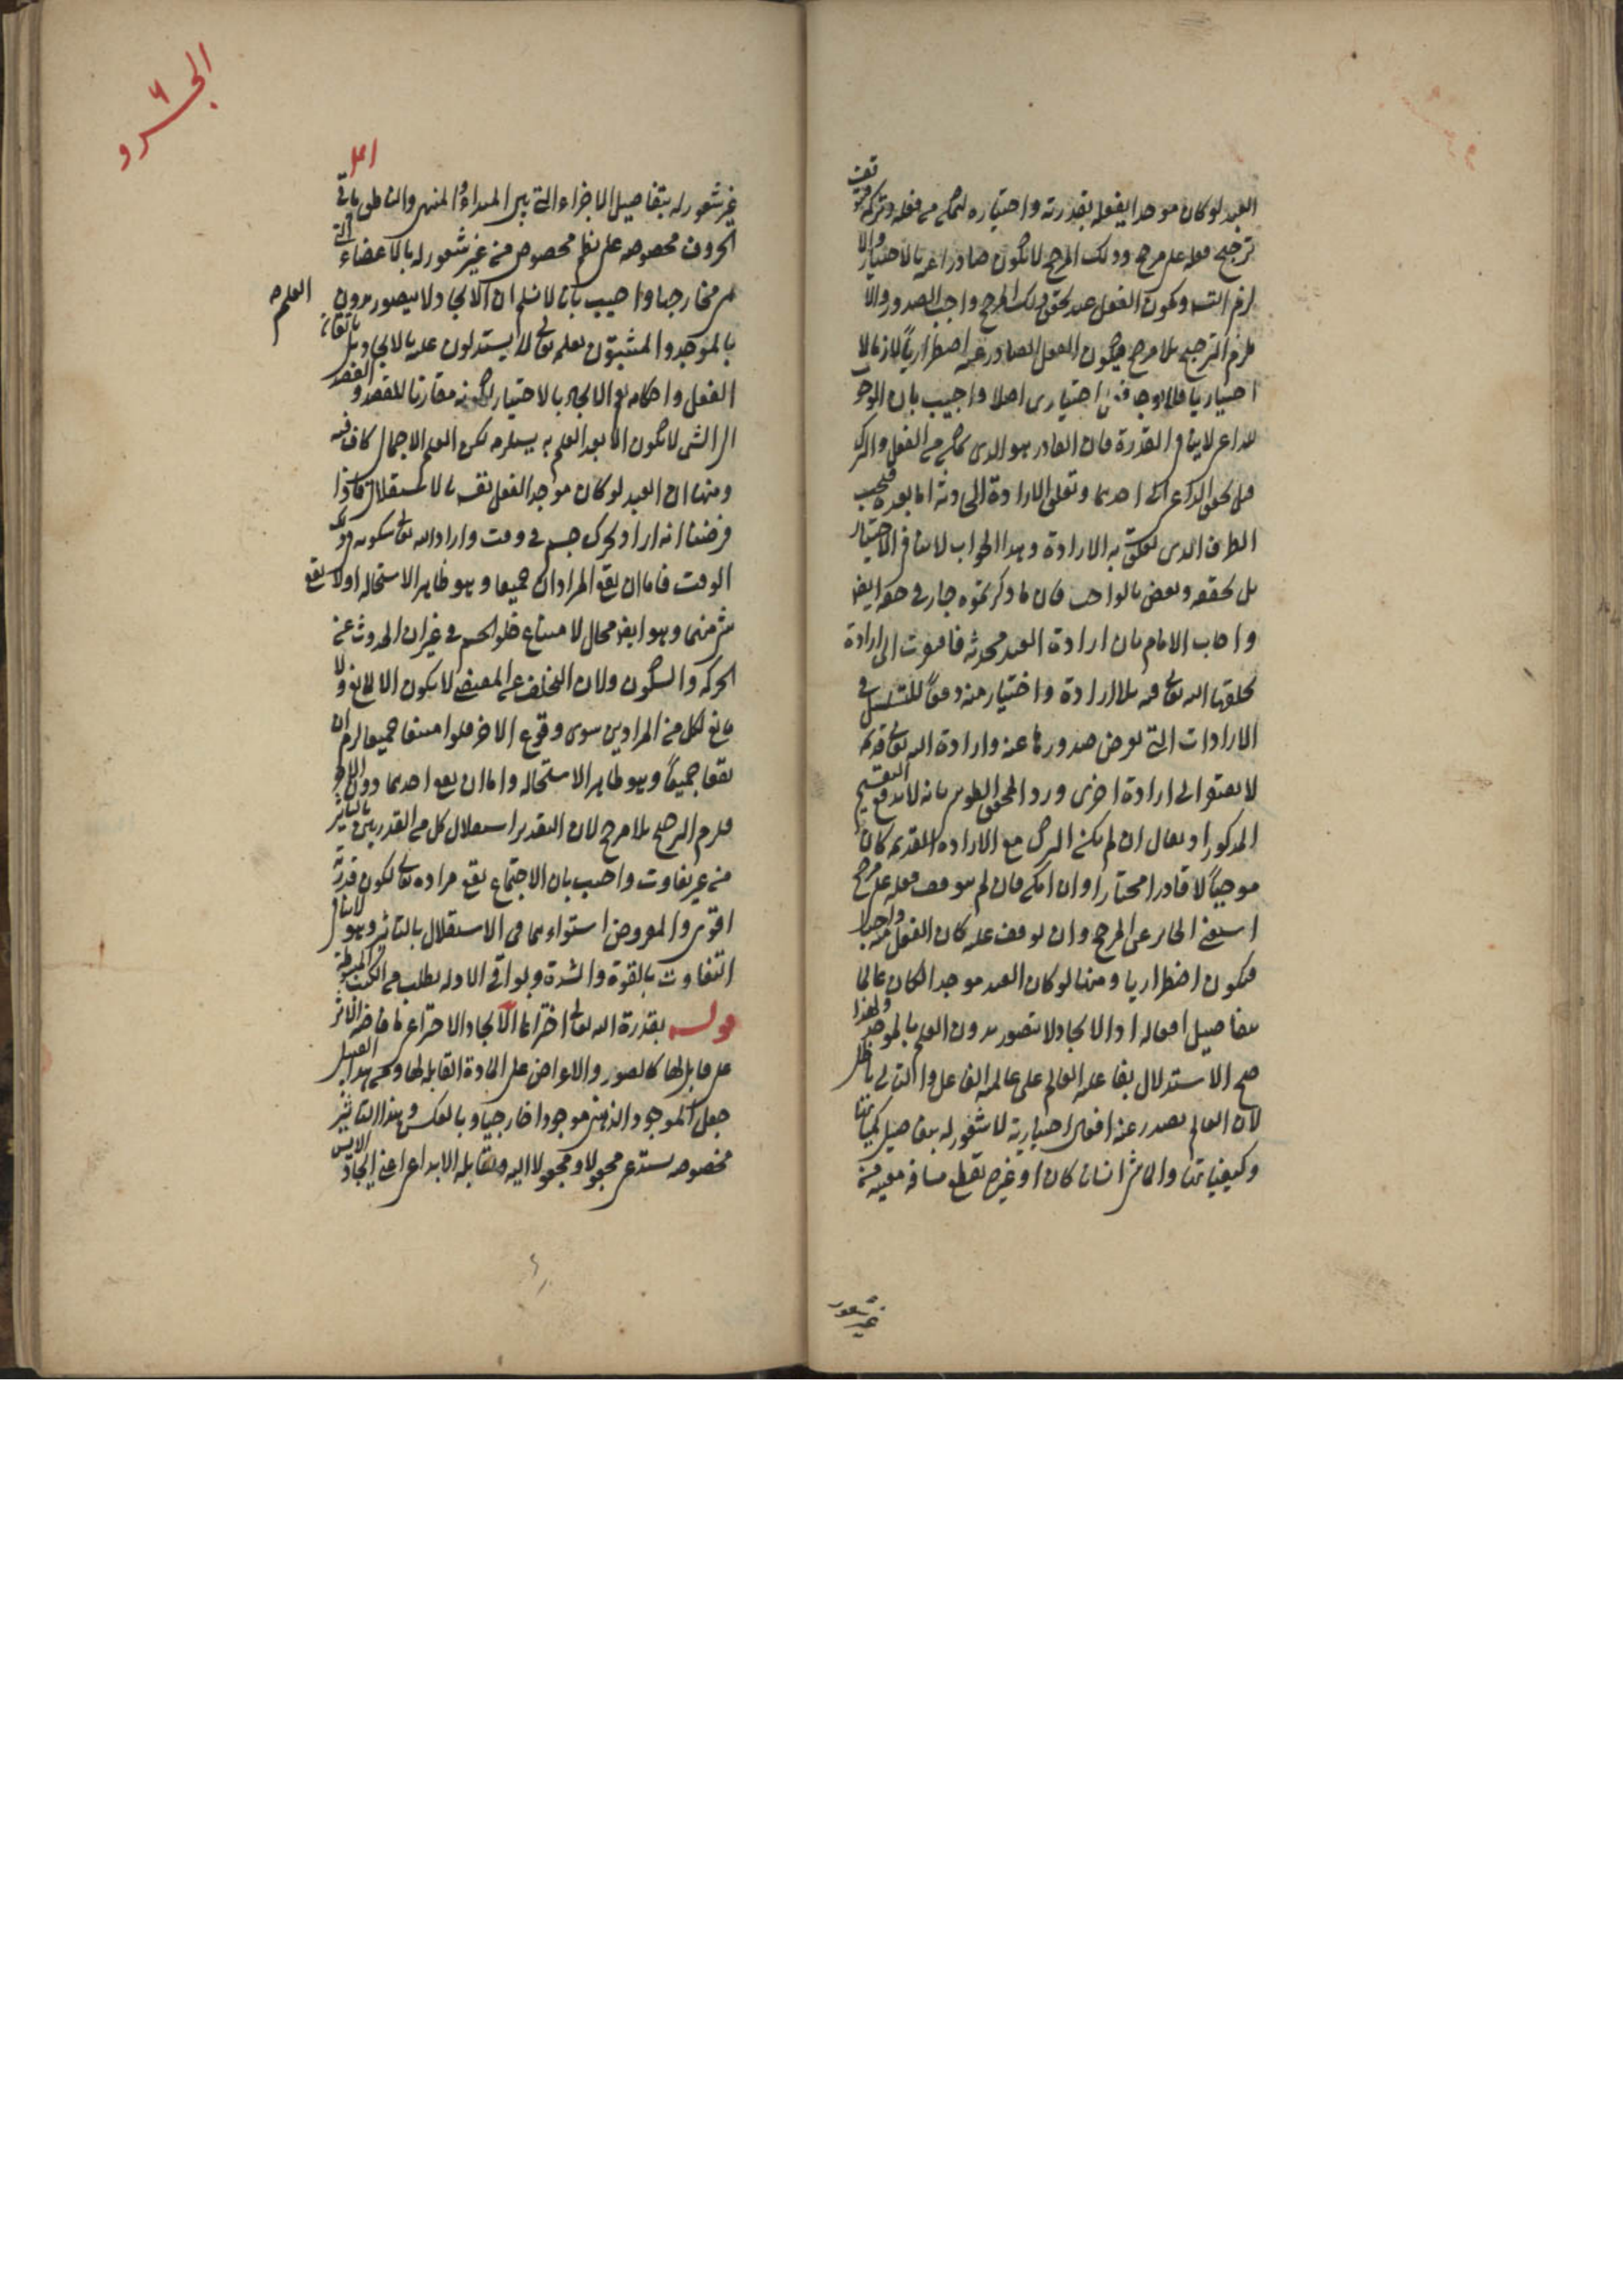 العبد لو كان موجدا لفعله بقدرته واختياره لتمكن من فعله وتركه وتوقف
ترجيح فعله على مرجح وذلك المرجح لا يكون صادرا عنه بالاختيار والا
لزم التسـ ويكون الفعل عند تحقق ذلك المرجح واجب الصدور والا
لزم الترجيح بلا مرجح فيكون الفعل الصادر عنه اضطراريا لازما لا
اختياريا فلا يوجد فعل اختياري اصلا واجيب بان الوجوب
للداعي لا ينافي القدرة فان القادر هو الذي يتمكن من الفعل والترك
قبل تحقق الداعي الى احدهما وتعلق الارادة الحادثة اما بعده فيجب
الطرف الذي تعلقت به الارادة وهذا الجواب لا ينافي الاختيار
بل يحققه ويعض بالواجب فان ما ذكرتموه جار في حقه ايضا
واجاب الامام بان ارادة العبد محدثة فافتقرت الى ارادة
يخلقها الله تعالى فيه بلا ارادة واختيار منه دفعا للتسلسل في
الارادات التي يفرض صدورها عنه وارادة الله تعالى قديمة
لا يفتقر الى ارادة اخرى ورد المحقق الطوسي بانه لا يدفع التقسيم
المذكور اذ يقال ان لم يكن الترك مع الارادة القديمة كان
موجبا لا قادرا مختارا وان امكن فان لم يتوقف فعله على مرجح
استغنى الجائز عن المرجح وان توقف عليه كان الفعل معه واجبا
فيكون اضطراريا ومنها لو كان العبد موجدا لكان عالما
بتفاصيل افعاله اذ الايجاد لا يتصور بدون العلم بالموجد ولهذا
صح الاستدلال بفاعلية العالم على عالمية الفاعل والتالي باطل
لان العالم يصدر عنه افعال اختيارية لا شعور له بتفاصيل كمياتها
وكيفياتها والماشي انسانا كان او غيره يقطع مسافة معينة من
غير شعور
غير شعور له بتفاصيل الاجزاء التي بين المبداء والمنتهى والناطق ياتي
الحروف مخصوصة على نظم مخصوص من غير شعور له بالاعضاء التي
هي مخارجها واجيب بانا لا نسلم ان الايجاد لا يتصور بدون العلم
بالموجد والمثبتون لعلمه تعالى لا يستدلون عليه بالايجاد بل باتقان
الفعل واحكامه نعم الايجاد بالاختيار لكونه مقارنا للقصد والقصد
الى الشئ لا يكون الا بعد العلم به يستلزمه لكن العلم الاجمالي كاف فيه
ومنها ان العبد لو كان موجدا لفعل نفسه بالاستقلال فاذا
فرضنا انه اراد تحرك جسم في وقت واراد الله تعالى سكونه في ذلك
الوقت فاما ان يقع المرادان جميعا وهو ظاهر الاستحالة او لا يقع
شئ منهما وهو ايضا محال لامتناع خلو الجسم في غير ان الحدوث عن
الحركة والسكون ولان التخلف عن المقتضي لا يكون الا لمانع ولا
مانع لكل من المرادين سوى وقوع الاخر فلو امتنعا جميعا لزم ان
يقعا جميعا وهو ظاهر الاستحالة واما ان يقع احدهما دون الاخر
فيلزم الترجيح بلا مرجح لان التقدير استقلال كل من القدرتين بالتاثير
من غير تفاوت واجيب بان الاجتماع يقع مراده تعالى لكون قدرته
اقوى والمفروض استواءهما في الاستقلال بالتاثير وهو لا ينافي
التفاوت بالقوة والشدة وبواقي الادلة يطلب من الكتب المبسوطة
قوله بقدرة الله تعالى اختراعا الايجاد الاختراعي افاضة الاثر
على قابل لها كالصور والاعراض على المادة القابلة لها ومن هذا القبيل
جعل الموجود الذهني موجودا خارجيا وبالعكس وهذا التاثير
مخصوصه يستدعي مجعولا ومجعولا اليه ومقابله الابداعي اعني ايجاد الايس